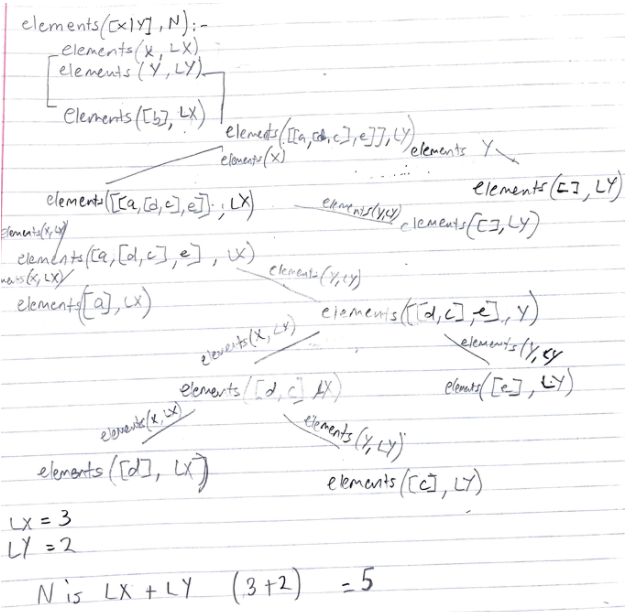 elements([X|Y], N):-
elements(X, LX)
elements(Y, LY)
elements([b], LX)
elements([[a,[d,c],e]], LY)
elements(X)
elements Y
......
elements([], LY)
elements([[a,[d,c],e]], LX)
elements(Y,LY)
elements([], LY)
elements(X,LX)
elements([a,[d,c],e], LX)
elements(Y,LY)
(X, LX)
elements([a], LX)
elements([[d,c],e], Y)
elements(X, LX)
elements(Y, LY
elements([d,c] LX)
elements([e], LY)
elements(X, LX)
elements(Y, LY)
elements([d], LX)
elements([c], LY)
LX = 3
LY = 2
N is LX + LY (3+2) = 5